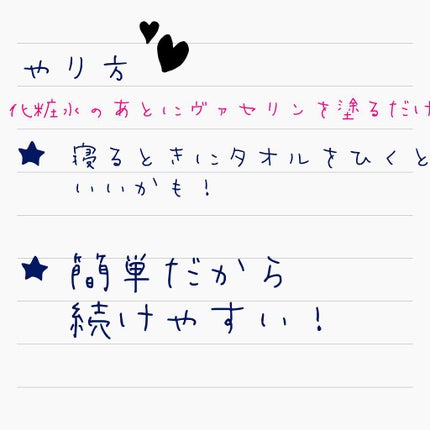 やり方
化粧水のあとにヴァセリンを塗るだけ
★ 寝るときにタオルをひくと
いいかも！
★ 簡単だから
続けやすい！